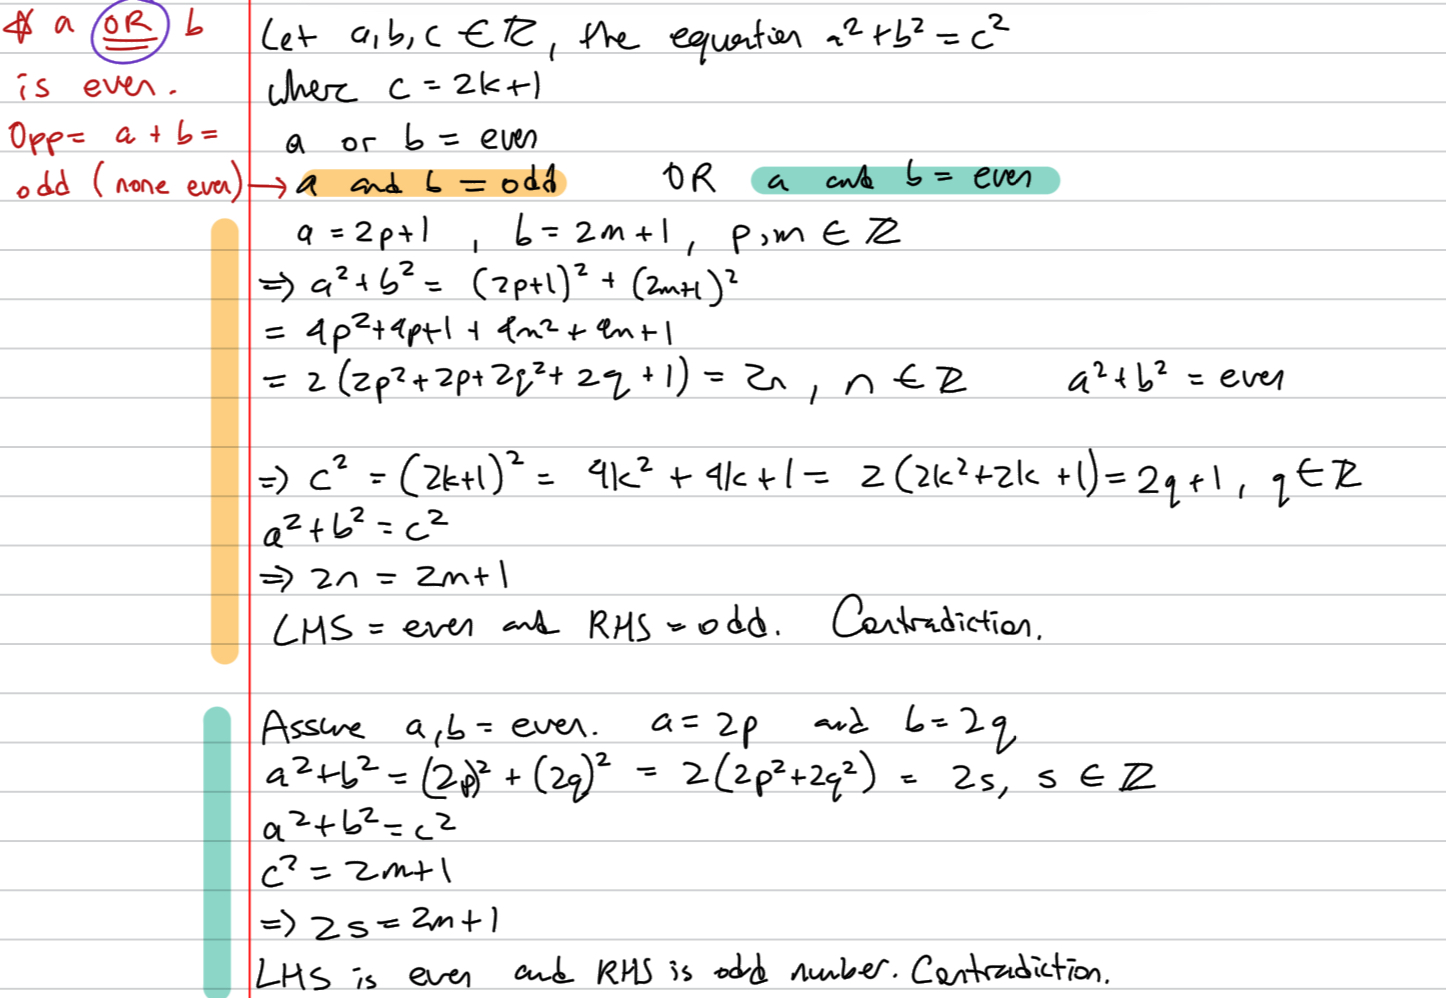 * a OR b
is even.
Opp= a + b =
odd (none even) →
Let a, b, c ∈ ℤ, the equation a² + b² = c²
where c = 2k+1
a or b = even
a and b = odd OR a and b = even
a = 2p+1 , b = 2m+1, p, m ∈ ℤ
⇒ a² + b² = (2p+1)² + (2m+1)²
= 4p² + 4p+1 + 4m² + 4m+1
= 2 (2p² + 2p + 2q² + 2q + 1) = 2n , n ∈ ℤ a² + b² = even
⇒ c² = (2k+1)² = 4k² + 4k + 1 = 2 (2k² + 2k + 1) = 2q + 1, q ∈ ℤ
a² + b² = c²
⇒ 2n = 2m+1
LHS = even and RHS = odd. Contradiction.
Assume a, b = even. a = 2p and b = 2q
a² + b² = (2p)² + (2q)² = 2 (2p² + 2q²) = 2s, s ∈ ℤ
a² + b² = c²
c² = 2m+1
⇒ 2s = 2m+1
LHS is even and RHS is odd number. Contradiction.